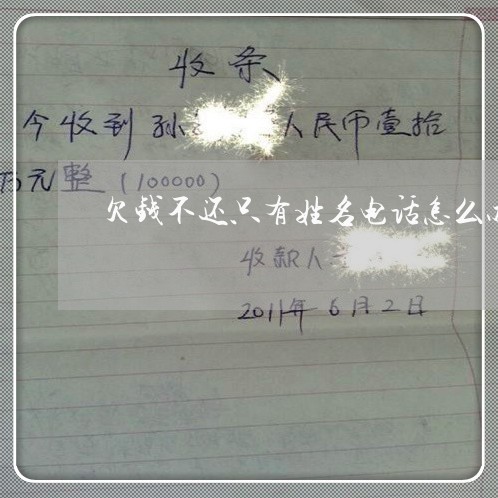 收条
今收到孙 人民币壹拾
万元整（100000）
欠钱不还只有姓名电话怎么
收款人
2011年6月2日